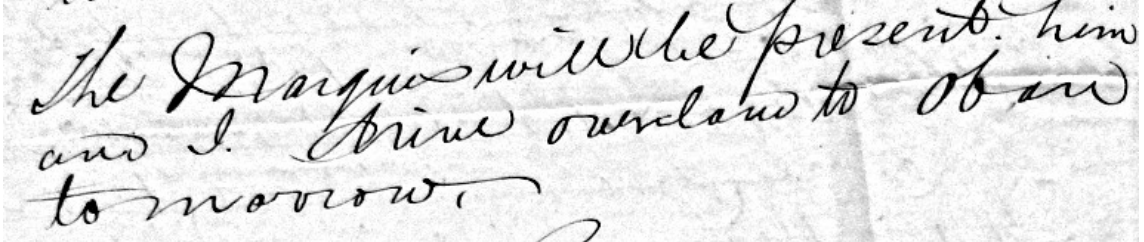 The Marquis will be present. him
and I. drive overland to Oban
tomorrow.